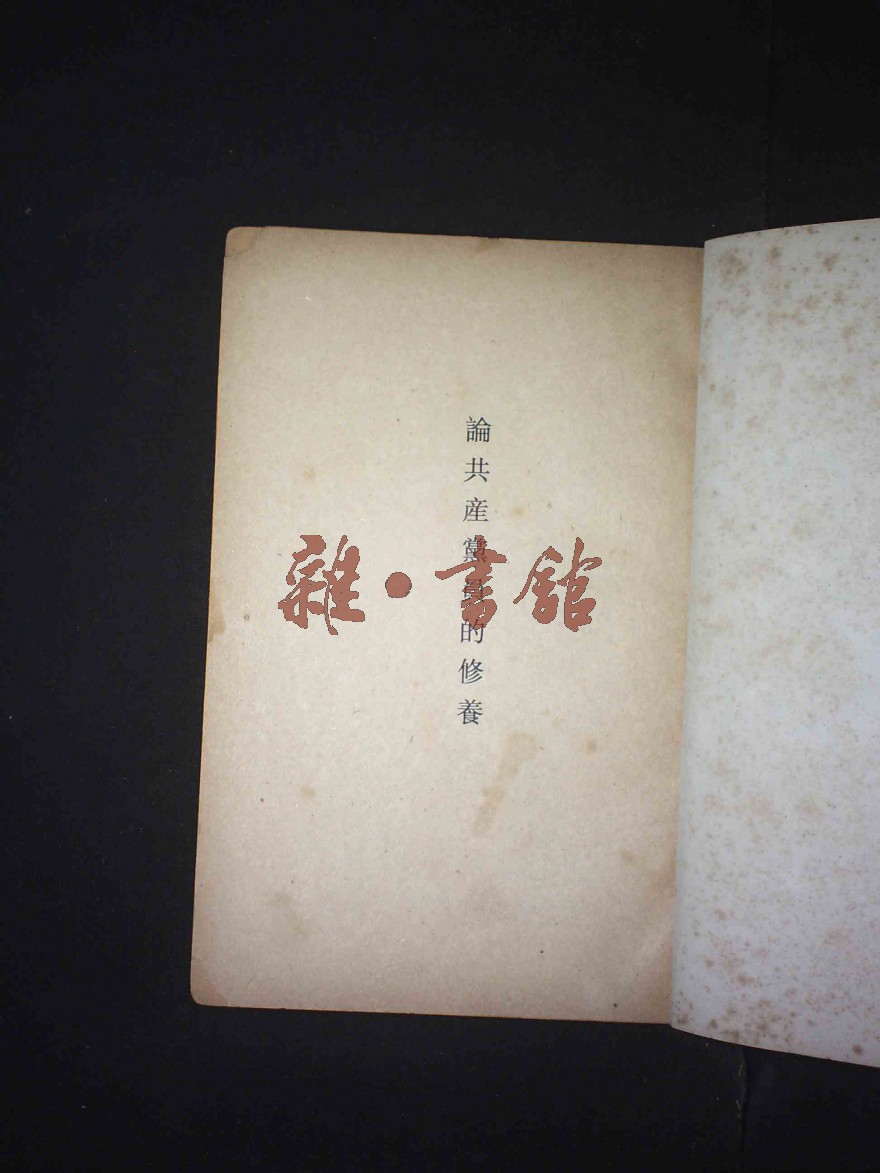 論共産黨員的修養
雜·書館